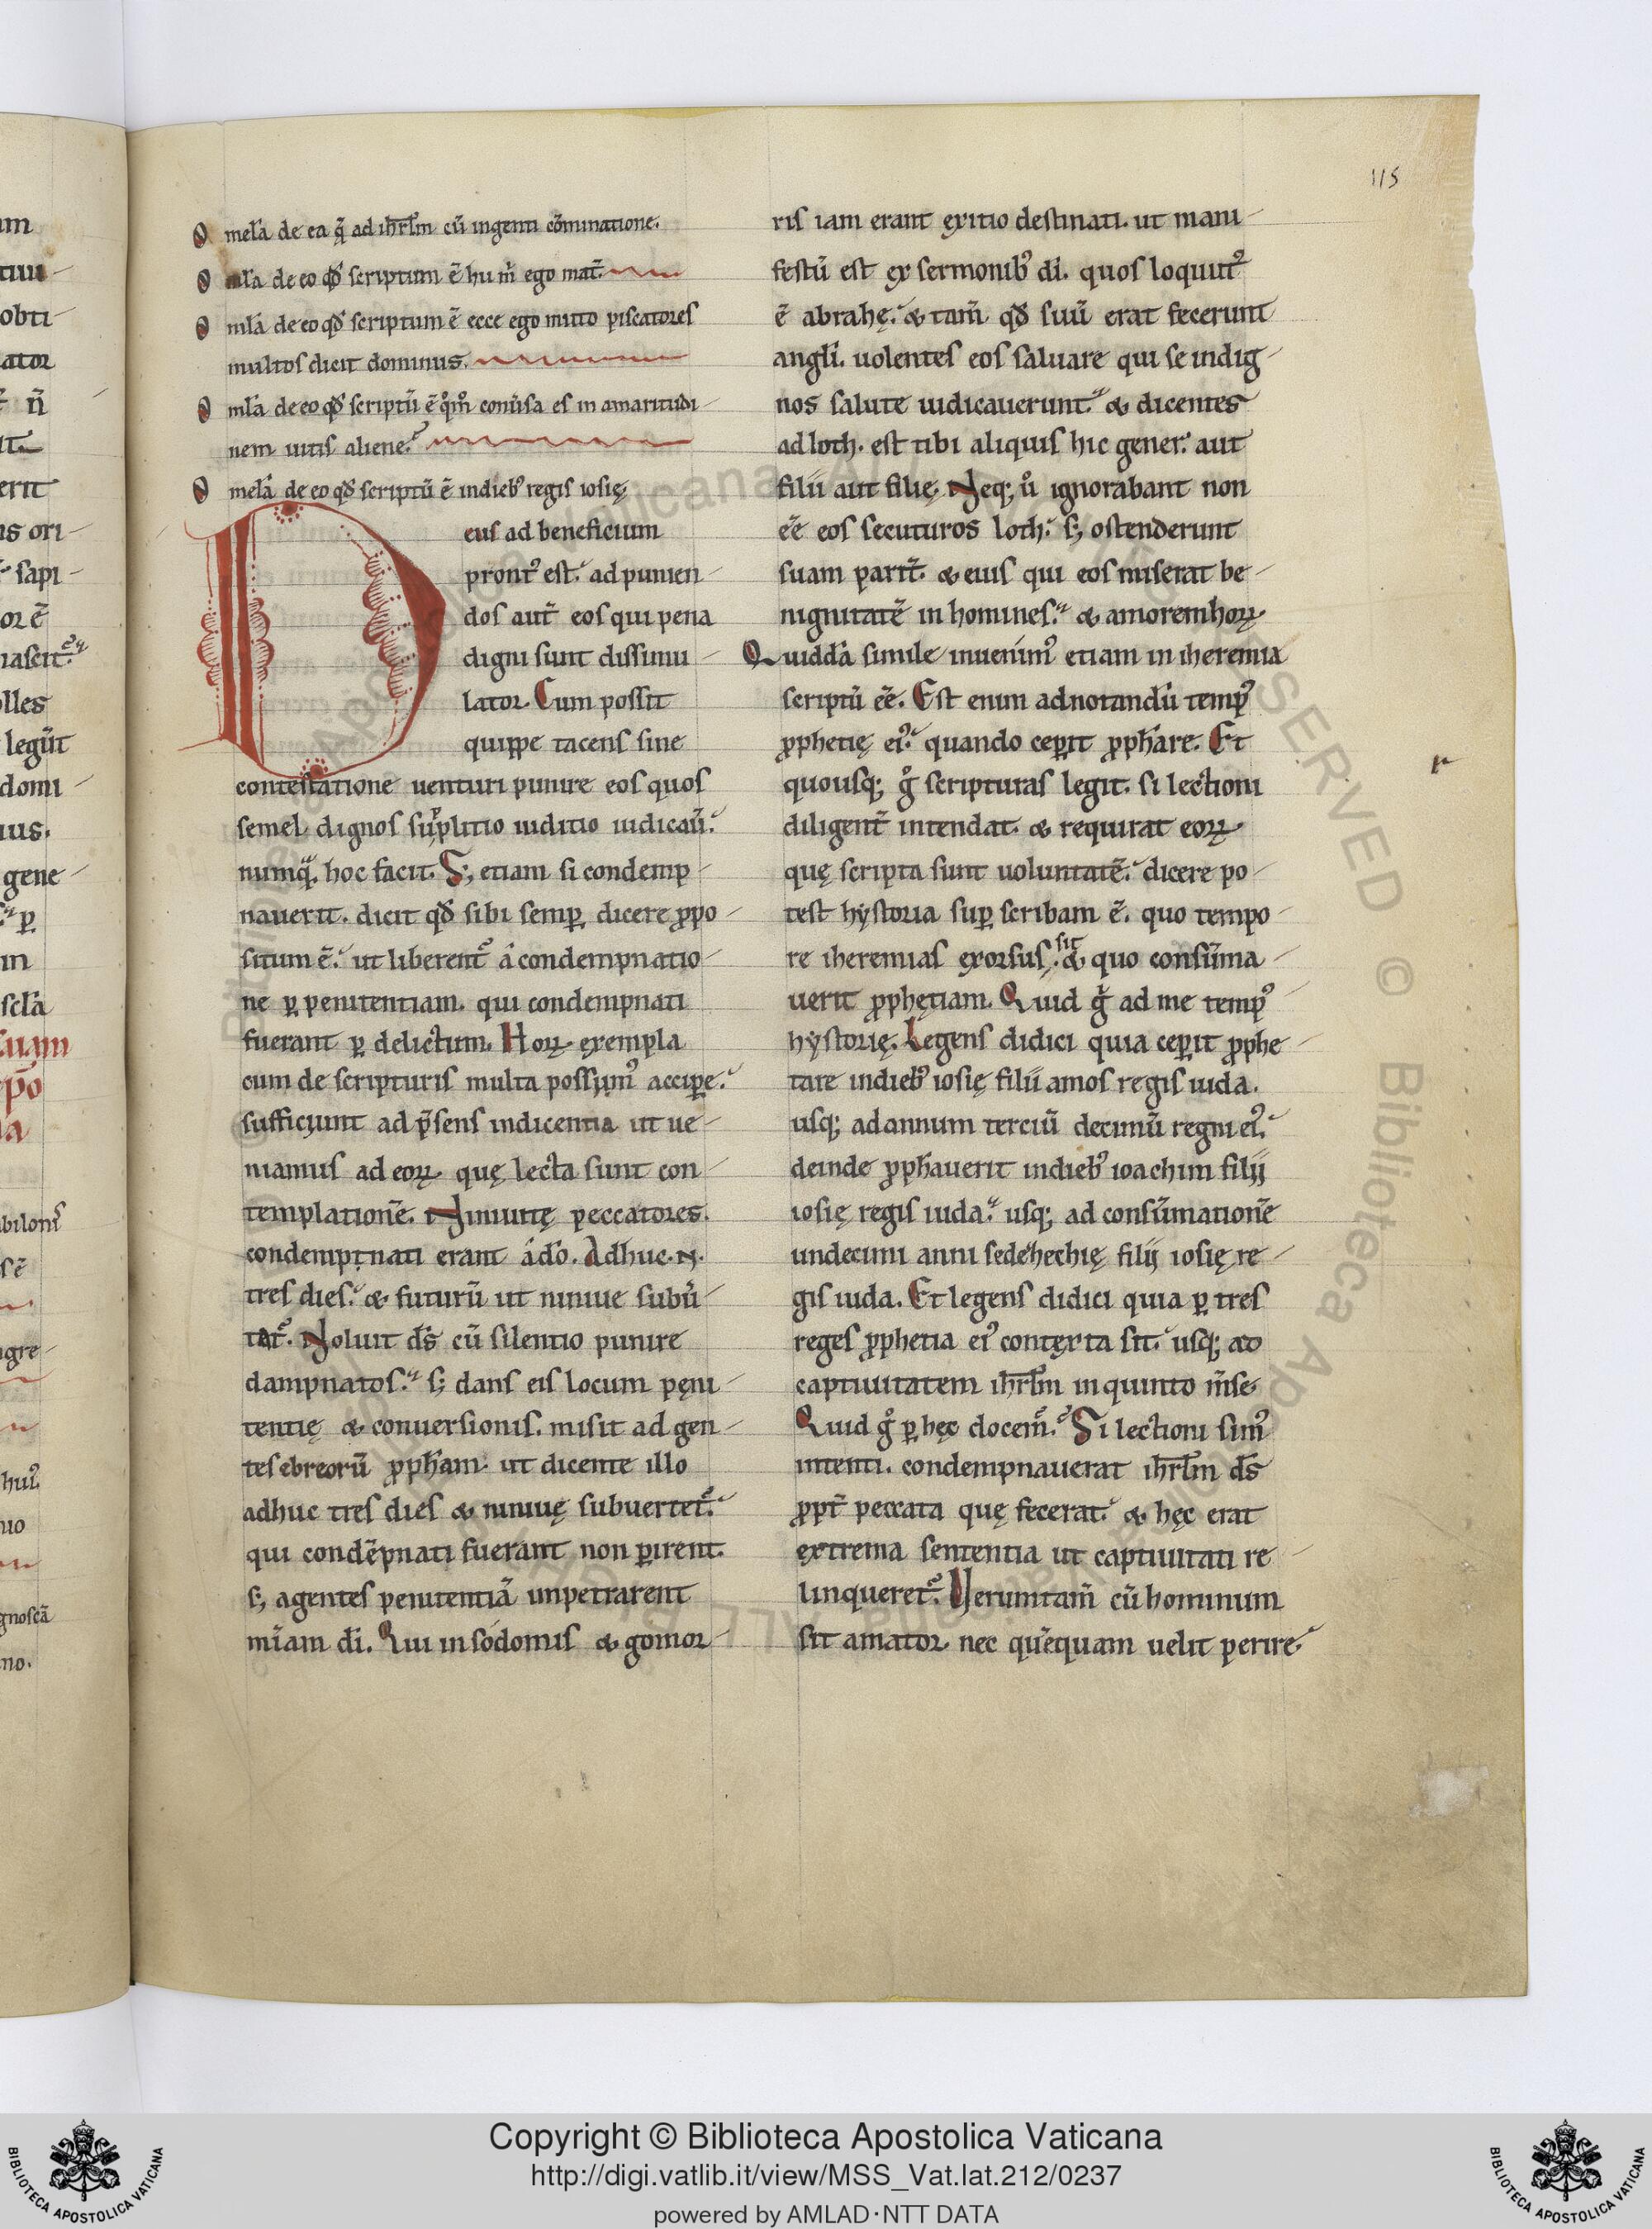 115
Omel̄a de ea q̄ ad ih̄rl̄m cū ingenti cōminatione.
Oml̄a de eo qđ scriptum ē hu m̄ ego mat̄.
Oml̄a de eo qđ scriptum ē ecce ego mitto piscatores
multos dicit dominus.
Oml̄a de eo qđ scriptū ē q̊m̊ conūsa es in amaritudi
nem uitis aliene.
Omel̄a de eo qđ scriptū ē in dieb᷒ regis iosię
Deus ad beneficium
pront᷒ est. ad punien
dos aut̄ eos qui pena
digni sunt dissimu
lator. Cum possit
quippe tacens sine
contestatione uenturi punire eos quos
semel dignos suplitio iuditio iudicau̅.
numqͣ. hoc facit. S; etiam si condemp
nauerit. dicit qđ sibi semꝑ dicere ꝓpo
situm ē. ut liberent᷒ á condempnatio
ne ꝑ penitentiam. qui condempnati
fuerant ꝑ delictum. Hoꝝ exempla
cum de scripturis multa possum᷒ acciꝑe.
sufficiunt ad p̄sens indicentia ut ue
niamus ad eoꝝ quę lecta sunt con
templationē. Niniuitę peccatores.
condempnati erant á dō. Adhuc .n.
tres dies. & futurū ut niniue subū
tat᷒. Noluit ds̄ cū silentio punire
dampnatos. s; dans eis locum pęni
tentię & conuersionis. misit ad gen
tes ebreorū ꝓph̄am. ut dicente illo
adhuc tres dies & niniuę subuertet᷒.
qui condēpnati fuerant non ꝑirent.
s; agentes penitentiā impetrarent
mīam dī. Qui in sódomis & gomor
ris iam erant exitio destinati. ut mani
festū est ex sermonib᷒ dī. quos loquut᷒
ē abrahę. & tam̄ qđ suū erat fecerunt
angli. uolentes eos saluare qui se indig
nos salute iudicauerunt. & dicentes
ad loth. est tibi aliquis hic gener. aut
filii aut filię. Neq; u̇ ignorabant non
eē eos secuturos loth. s; ostenderunt
suam parit̄. & eius qui eos miserat be
nignitatē in homines. & amorem hoꝝ
Quiddā simile inuenim᷒ etiam in iheremia
scriptū eē. Est enim adnotandū temp᷒
ꝓphetię ei᷒. quando ceꝑit ꝓph̄are. Et
quousq; g̊ scripturas legit. si lectioni
diligent̄ intendat. & requirat eoꝝ
quę scripta sunt uoluntatē. dicere po
test hystoria suꝑ scribam ē. quo tempo
re iheremias exorsus sit. & quo consūma
uerit ꝓphętiam. Quid g̊ ad me temp᷒
hystorię. Legens didici quia ceꝑit ꝓphe
tare in dieb᷒ iosię filii amos regis iuda.
usq; ad annum terciū decimū regni ei᷒.
deinde ꝓph̄auerit in dieb᷒ ioachim filij
iosię regis iuda. usq; ad consūmationē
undecimi anni sedechechię filij iosię re
gis iuda. Et legens didici quia ꝑ tres
reges ꝓphetia ei᷒ contexta sit. usq; ad
captiuitatem ih̄rl̄m in quinto m̄se
Quid g̊ ꝑ hęc docem᷒. Si lectioni sim᷒
intenti. condempnauerat ih̄rl̄m ds̄
ꝓpt̄ peccata quę fecerat. & hęc erat
extrema sententia ut captiuitati re
linqueret᷒. Verumtam̄ cū hominum
sit amator. nec quēquam uelit perire.
Copyright © Biblioteca Apostolica Vaticana
http://digi.vatlib.it/view/MSS_Vat.lat.212/0237
powered by AMLAD·NTT DATA
BIBLIOTECA APOSTOLICA VATICANA
BIBLIOTECA APOSTOLICA VATICANA